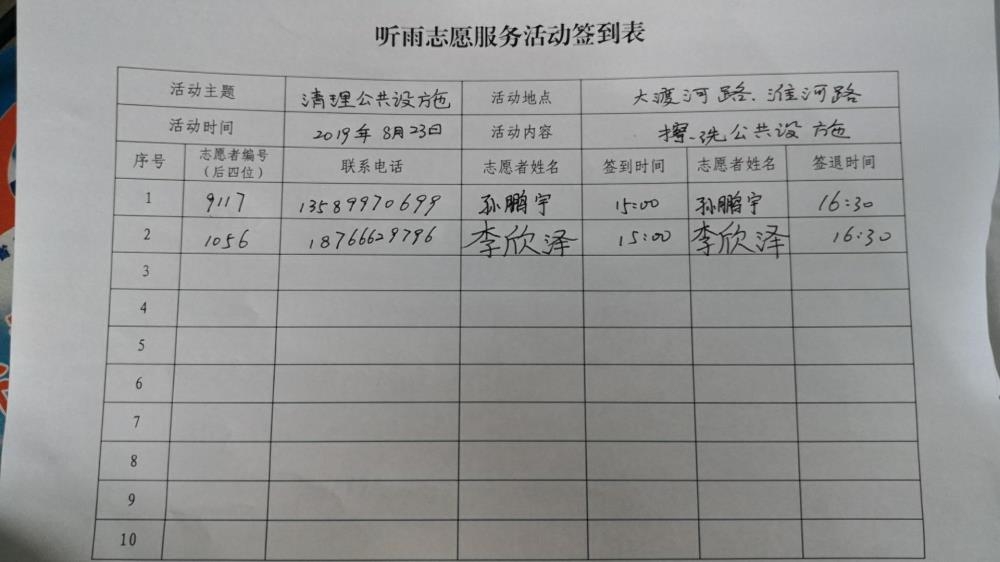 听雨志愿服务活动签到表
活动主题 清理公共设施 活动地点 大渡河路、淮河路
活动时间 2019年8月23日 活动内容 擦、洗公共设施
序号 志愿者编号（后四位） 联系电话 志愿者姓名 签到时间 志愿者姓名 签退时间
1 9117 13589970699 孙鹏宇 15:00 孙鹏宇 16:30
2 1056 18766629796 李欣泽 15:00 李欣泽 16:30
3
4
5
6
7
8
9
10